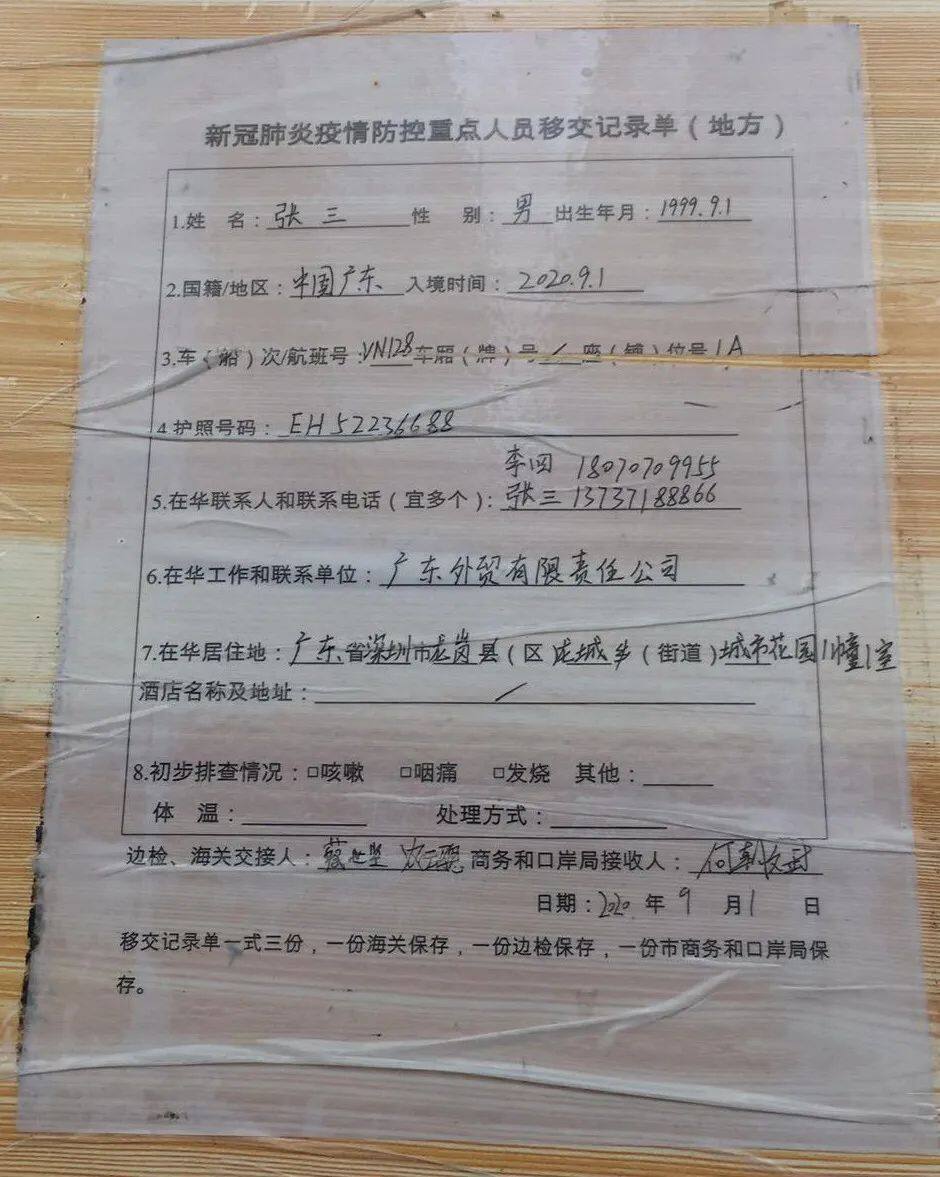 新冠肺炎疫情防控重点人员移交记录单（地方）
1.姓 名：张三 性 别：男 出生年月：1999.9.1
2.国籍/地区：中国广东 入境时间：2020.9.1
3.车（船）次/航班号：VN128 车厢（牌）号 / 座（铺）位号1A
4.护照号码：EH52236688
李四 18070709955
5.在华联系人和联系电话（宜多个）：张三 13737188866
6.在华工作和联系单位：广东外贸有限责任公司
7.在华居住地：广东省深圳市龙岗县（区 龙城乡（街道）城市花园1幢1室
酒店名称及地址： /
8.初步排查情况：□咳嗽 □咽痛 □发烧 其他：
体 温： 处理方式：
边检、海关交接人： 商务和口岸局接收人：
日期：2020 年 9 月 1 日
移交记录单一式三份，一份海关保存，一份边检保存，一份市商务和口岸局保
存。